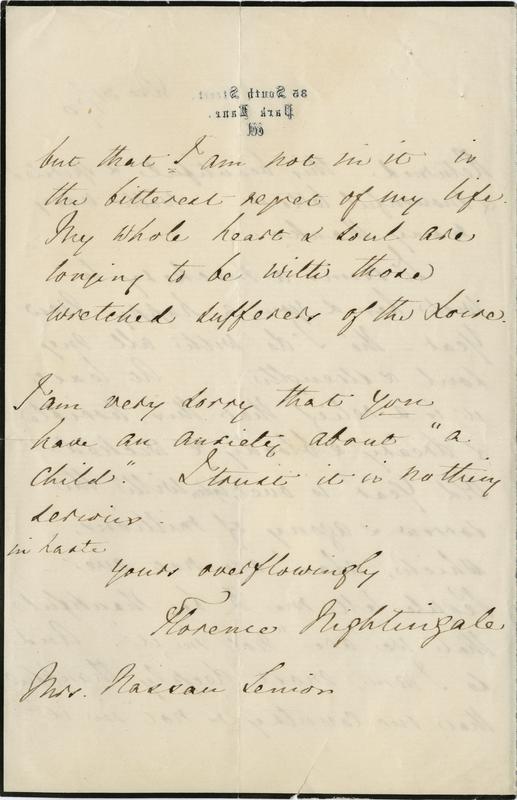 35 South Street,
Park Lane.
W.
but that I am not in it is
the bitterest regret of my life.
My whole heart & soul are
longing to be with those
wretched sufferers of the Loire.
I am very sorry that you
have an anxiety about "a
child". I trust it is nothing
serious.
in haste
yours overflowingly
Florence Nightingale
Mrs. Nassau Senior